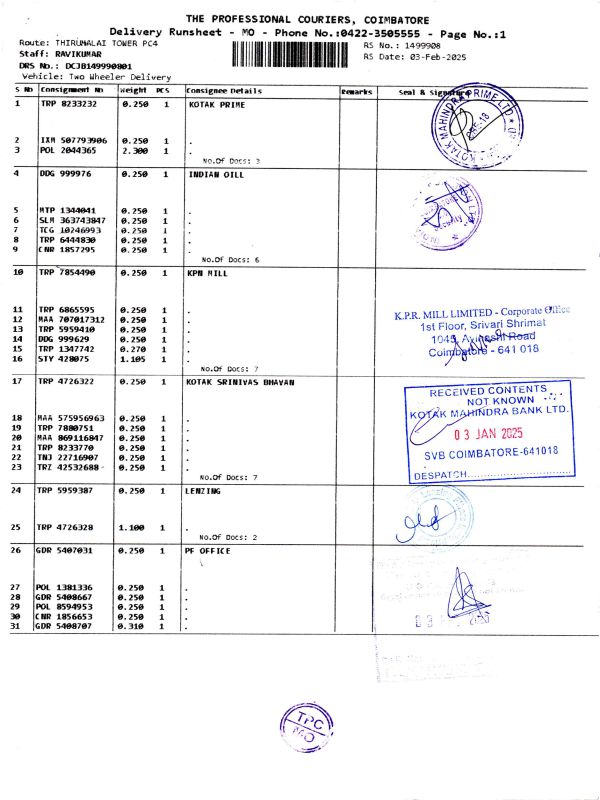 THE PROFESSIONAL COURIERS, COIMBATORE
Delivery Runsheet - MO - Phone No.:0422-3505555 - Page No.:1
Route: THIRUMALAI TOWER PC4
RS No.: 1499908
Staff: RAVIKUMAR
RS Date: 03-Feb-2025
DRS No.: DCJB149990801
Vehicle: Two Wheeler Delivery
S No Consignment No Weight PCS Consignee Details Remarks Seal & Signature
1 TRP 8233232 0.250 1 KOTAK PRIME
KOTAK MAHINDRA PRIME LTD
CBE-18
2 IXM 507793906 0.250 1 .
3 POL 2044365 2.300 1 .
No.Of Docs: 3
4 DDG 999976 0.250 1 INDIAN OILL
5 MTP 1344041 0.250 1 .
6 SLM 363743847 0.250 1 .
7 TCG 10246993 0.250 1 .
8 TRP 6444830 0.250 1 .
9 CNR 1857295 0.250 1 .
No.Of Docs: 6
10 TRP 7854490 0.250 1 KPN MILL
11 TRP 6865595 0.250 1 .
12 MAA 707017312 0.250 1 .
13 TRP 5959410 0.250 1 .
14 DDG 999629 0.250 1 .
15 TRP 1347742 0.270 1 .
16 STY 428075 1.105 1 .
No.Of Docs: 7
K.P.R. MILL LIMITED - Corporate Office
1st Floor, Srivari Shrimat
1045, Avinashi Road
Coimbatore - 641 018
17 TRP 4726322 0.250 1 KOTAK SRINIVAS BHAVAN
18 MAA 575956963 0.250 1 .
19 TRP 7880751 0.250 1 .
20 MAA 869116847 0.250 1 .
21 TRP 8233770 0.250 1 .
22 TNJ 22716907 0.250 1 .
23 TRZ 42532688 0.250 1 .
No.Of Docs: 7
RECEIVED CONTENTS
NOT KNOWN
KOTAK MAHINDRA BANK LTD.
03 JAN 2025
SVB COIMBATORE-641018
DESPATCH
24 TRP 5959387 0.250 1 LENZING
25 TRP 4726328 1.100 1 .
No.Of Docs: 2
26 GDR 5407031 0.250 1 PF OFFICE
27 POL 1381336 0.250 1 .
28 GDR 5408667 0.250 1 .
29 POL 8594953 0.250 1 .
30 CNR 1856653 0.250 1 .
31 GDR 5408707 0.310 1 .
TPC
MO